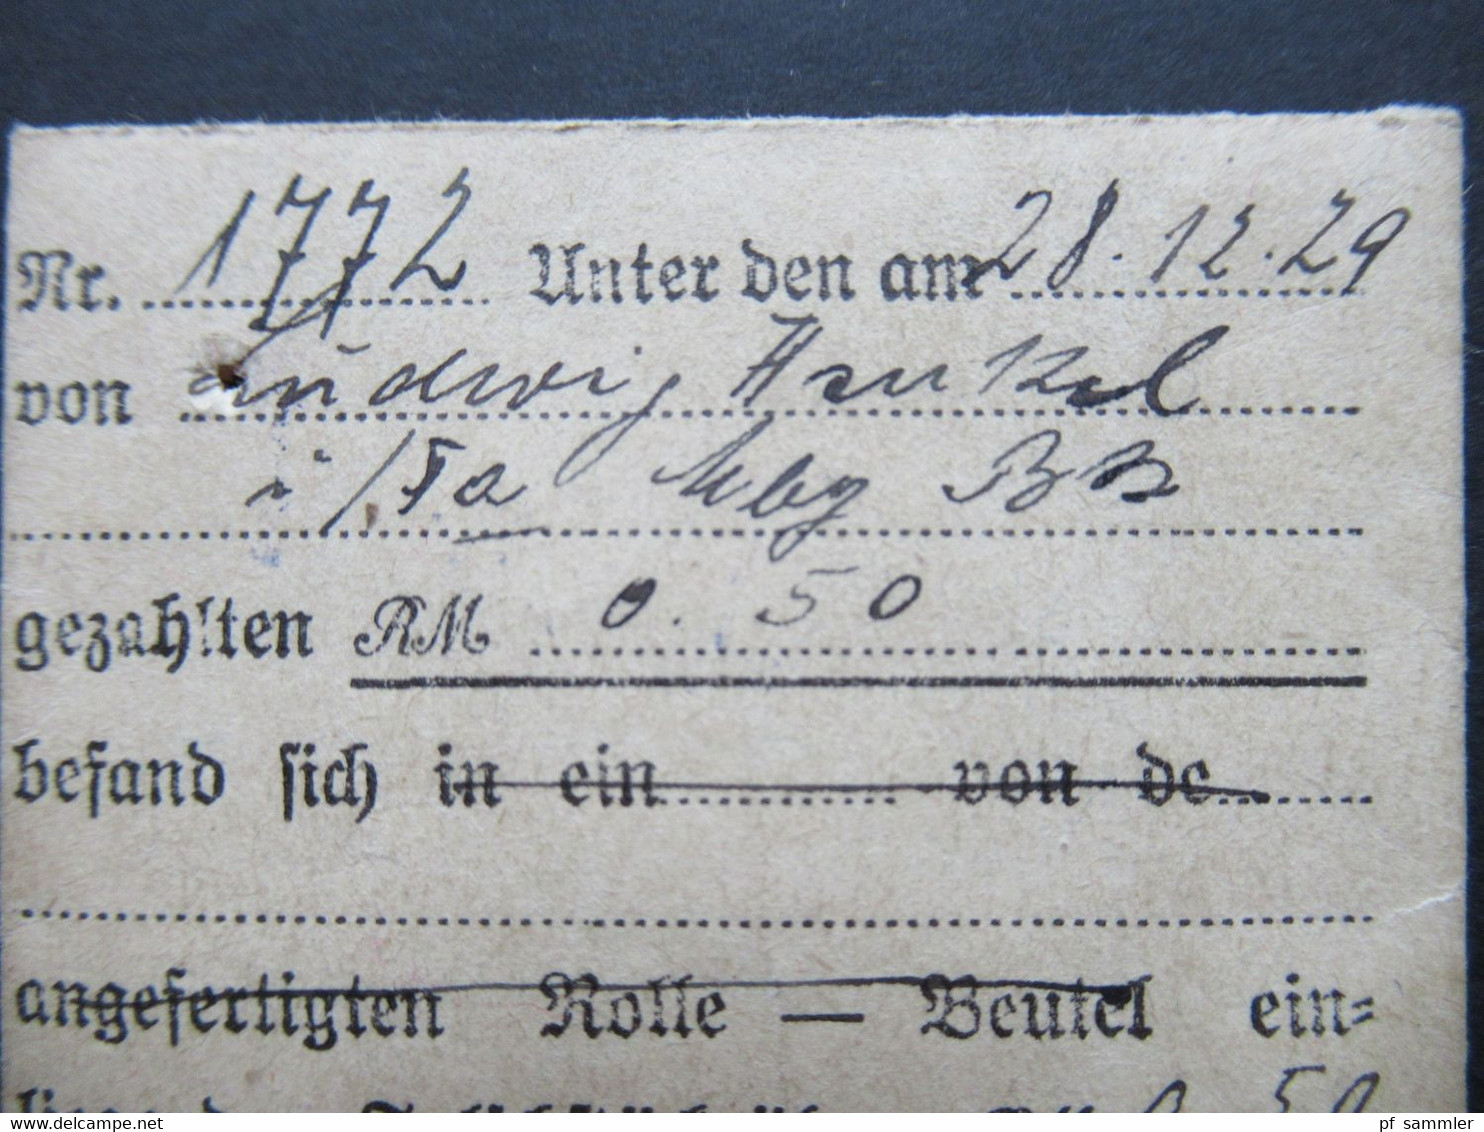 Nr. 1772 Unter den am 28.12.29
von Ludwig Henkel
i/Fa Mbg BB
gezahlten RM 0.50
befand sich in ein von de
angefertigten Rolle — Beutel ein=
www.delcampe.net
pf_sammler